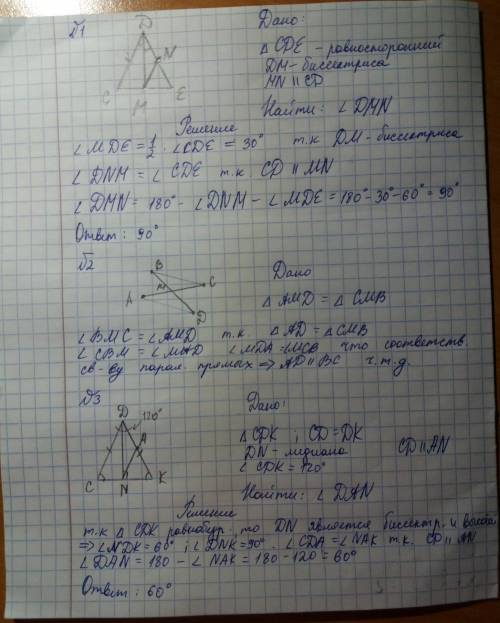 №1
D
N
C
M
E
Дано:
△ CDE - равносторонний
DM - биссектриса
MN || CD
Найти: ∠ DMN
Решение
∠ MDE = 1/2 · ∠CDE = 30° т.к DM - биссектриса
∠ DNM = ∠ CDE т.к CD || MN
∠ DMN = 180° - ∠ DNM - ∠ MDE = 180° - 30° - 60° = 90°
Ответ: 90°
№2
B
M
C
A
D
Дано
△ AMD = △ CMB
∠ BMC = ∠AMD т.к △ AD = △CMB
∠ CBM = ∠MAD ∠MDA = ∠MCB что соответств.
св-ву парал. прямых => AD || BC ч.т.д.
№3
D 120°
A
C
N
K
Дано:
△ CDK ; CD = DK
DN - медиана CD || AN
∠ CDK = 120°
Найти: ∠ DAN
Решение
т.к △ CDK равнобедр. то DN является биссектр. и высотой
=> ∠NDK = 60° ; ∠DNK = 90° . ∠ CDA = ∠ NAK т.к. CD || AN
∠ DAN = 180 - ∠ NAK = 180 - 120 = 60°
Ответ: 60°